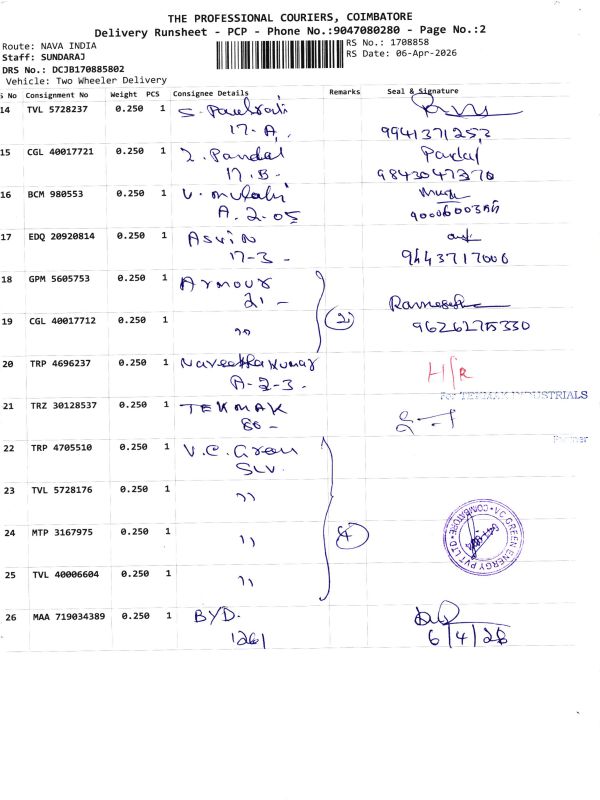 THE PROFESSIONAL COURIERS, COIMBATORE
Delivery Runsheet - PCP - Phone No.:9047080280 - Page No.:2
Route: NAVA INDIA
RS No.: 1708858
Staff: SUNDARAJ
RS Date: 06-Apr-2026
DRS No.: DCJB170885802
Vehicle: Two Wheeler Delivery
S No Consignment No Weight PCS Consignee Details Remarks Seal & Signature
14 TVL 5728237 0.250 1 S.
17-A,
15 CGL 40017721 0.250 1
17.B- 9843047370
16 BCM 980553 0.250 1 V.
A.2-05
17 EDQ 20920814 0.250 1 ASVIN
17-3- 9443717006
18 GPM 5605753 0.250 1 Armour
21- 2
19 CGL 40017712 0.250 1 "
9626275330
20 TRP 4696237 0.250 1 Naveethakumar H/R
A-2-3.
For TEKMAK INDUSTRIALS
21 TRZ 30128537 0.250 1 TEKMAK
86-
Partner
22 TRP 4705510 0.250 1 V.C. Green
SLV.
23 TVL 5728176 0.250 1 "
24 MTP 3167975 0.250 1 " 4
VC GREEN ENERGY PVT LTD COIMBATORE
25 TVL 40006604 0.250 1 "
26 MAA 719034389 0.250 1 BYD.
1261 6/4/26